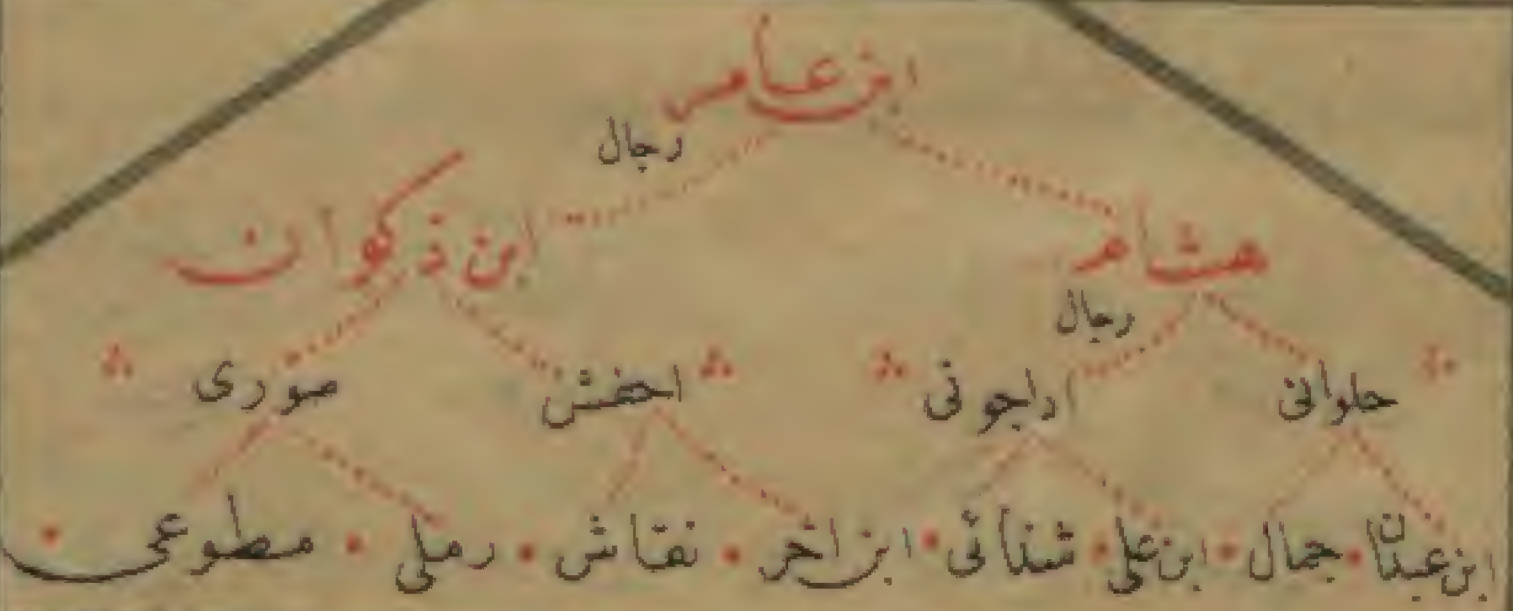 ابن عامر
رجال
هشام ابن ذكوان
رجال
حلوانى اداجونى احفش صورى
ابن عبدان جمال ابن على شذائى ابن اخر نقاش رملى مطوعى